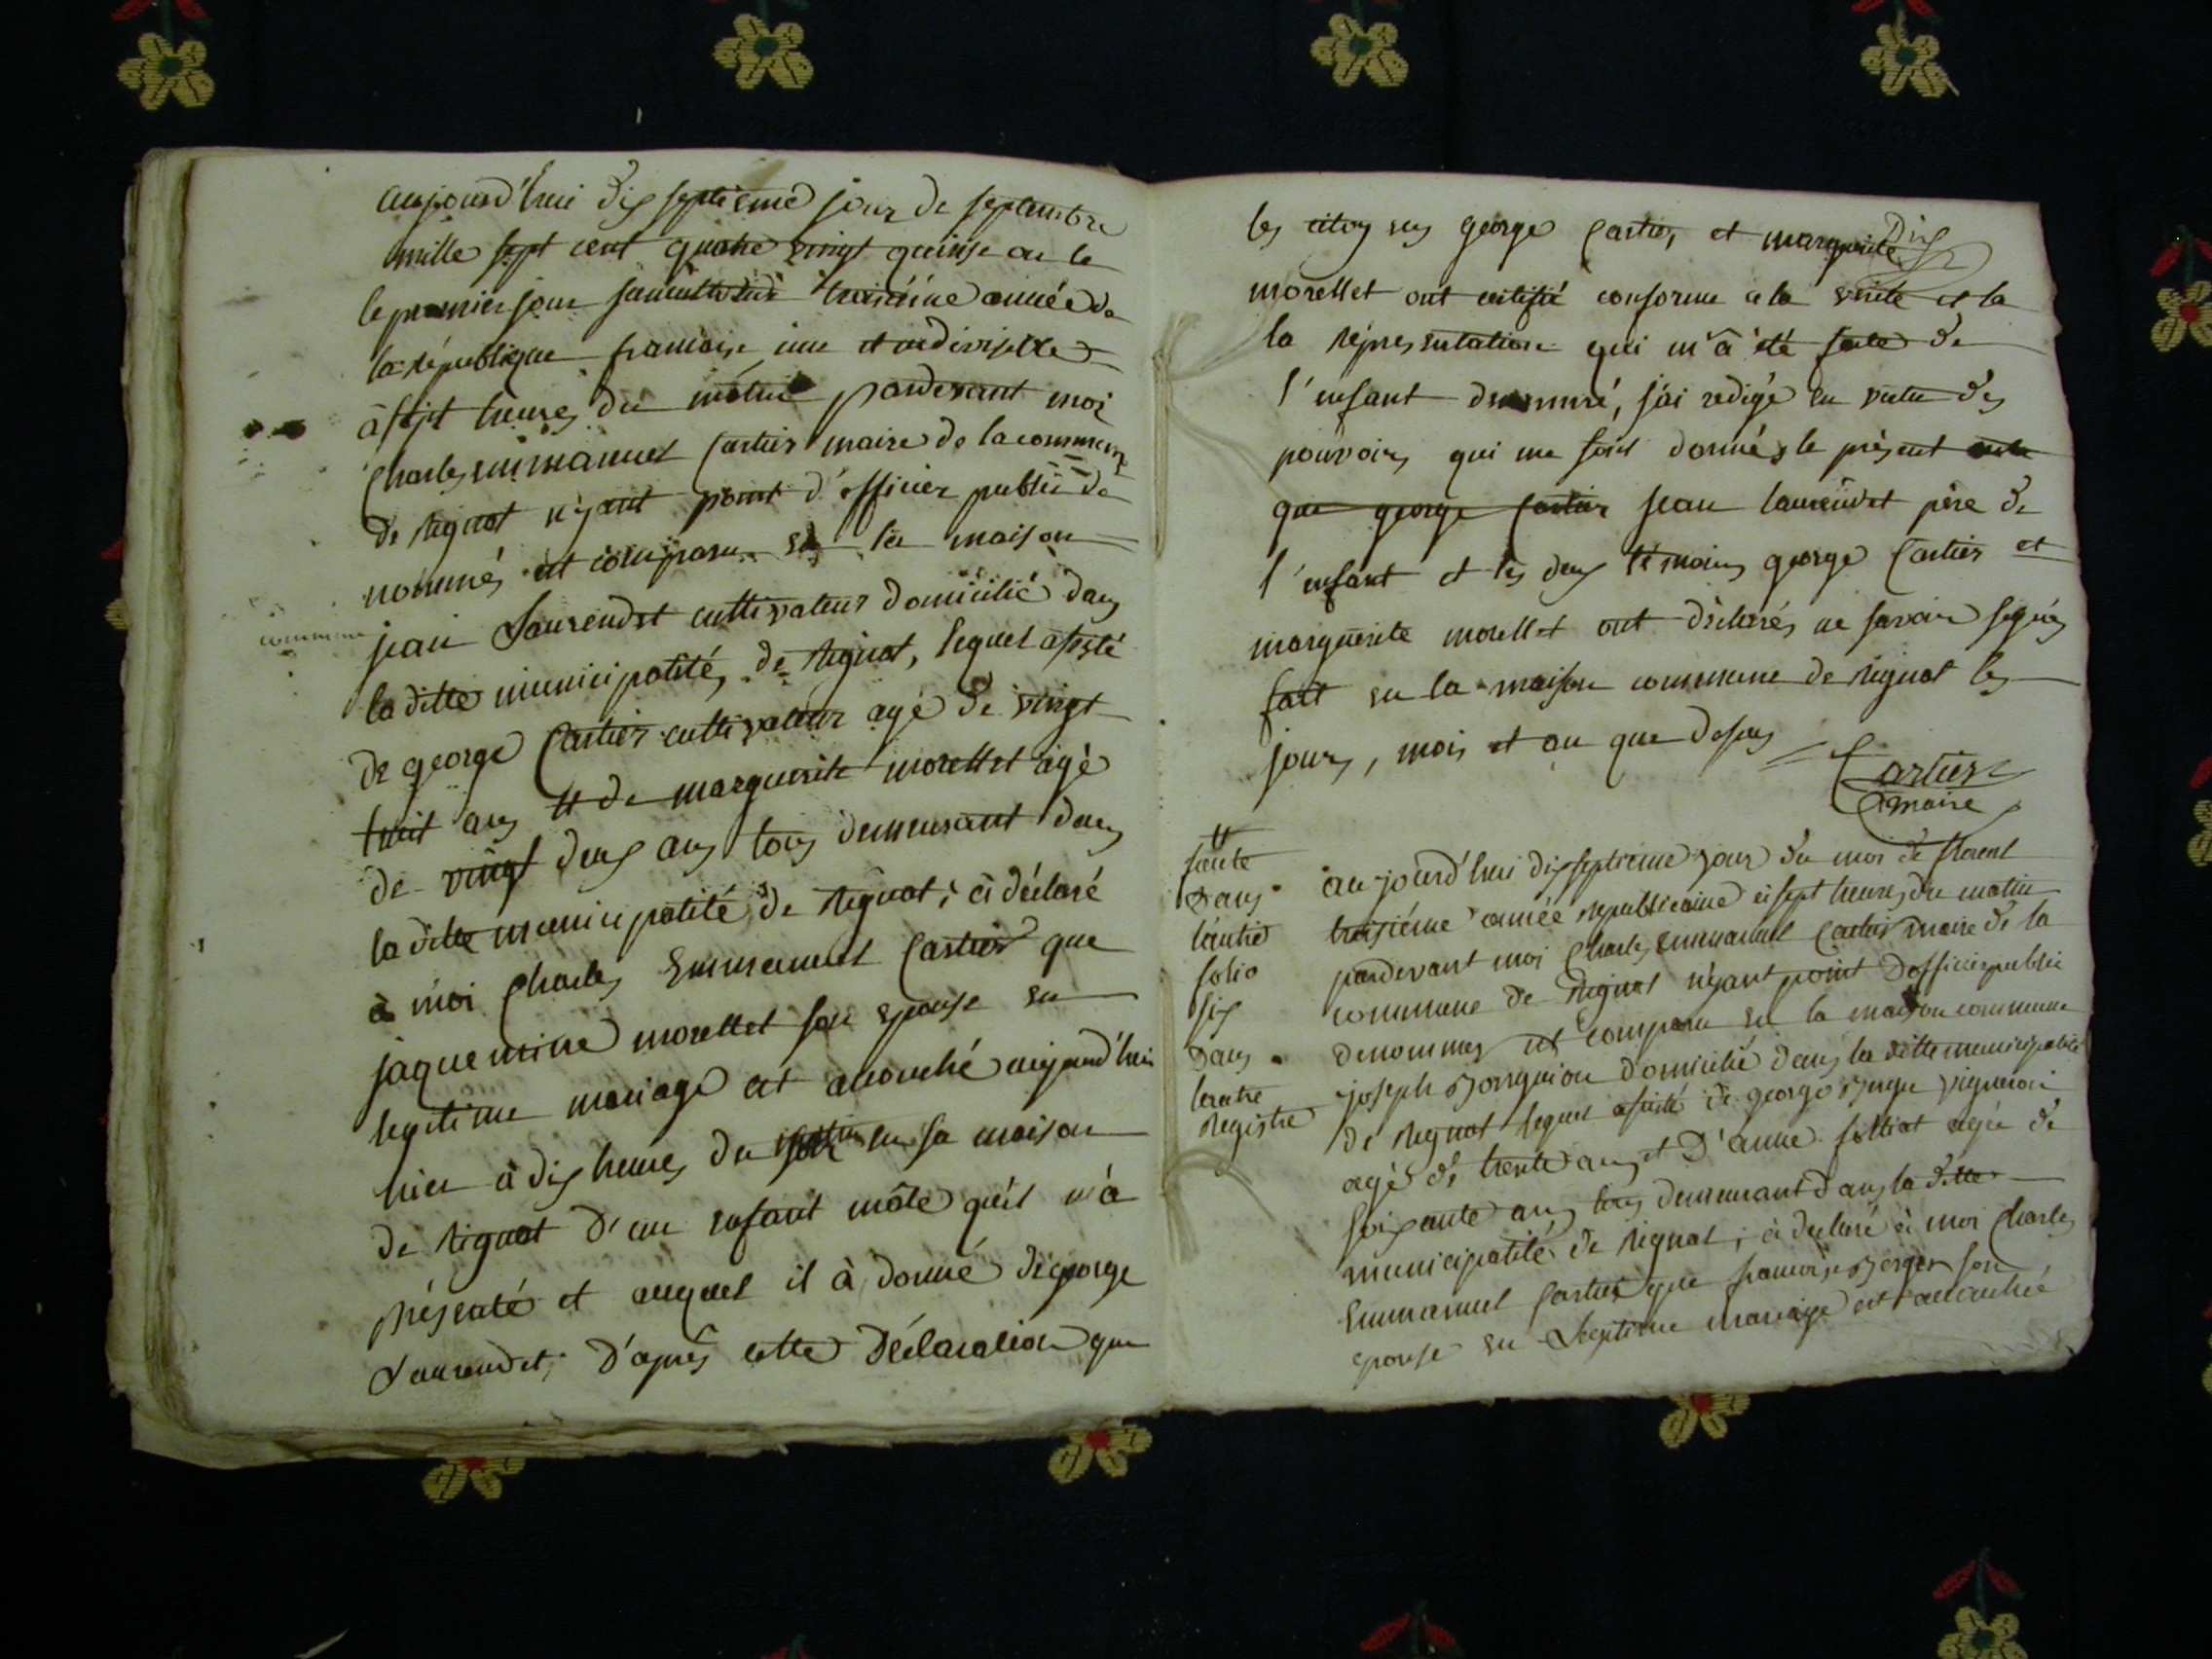 aujourd'hui dix septieme jour de septembre
mille sept cent quatre vingt quinse ou le
le premier jour troisiéme année de
la république francaise une et indivisible
à sept heures du matin pardevant moi
Charles emmanuel Cartier maire de la commune
de Rignat n'yant point d'officier public de
nommés est comparu en la maison
commune
jean Laurendet cultivateur domicilié dans
la ditte municipalité, de Rignat, lequel assisté
de george Cartier cultivateur agé de vingt
huit ans et de marguerite morellet agé
de vingt deux ans tous demeurant dans
la ditte municipalité de Rignat; à déclaré
à moi Charles Emmanuel Cartier que
jaquemine morellet son epouse en
legitime mariage est accouché aujourd'hui
hier à dix heures du en sa maison
de Rignat d'un enfant mâle qu'il m'à
présenté et auquel il à donné de george
Laurendet; d'après cette Déclaration que
Dix
les citoyens george Cartier et marguerite
morellet ont certifié conforme a la verité et la
la répresentation qui m'à été faite de
l'enfant denommé, j'ai redigé en vertu des
pouvoirs qui me sont donnés le présent acte
que george Cartier jean laurendet père de
l'enfant et les deux témoins george Cartier et
marguerite morellet ont déclarés ne savoir signés
fait en la maison commune de Rignat les
jours, mois et an que dessus
Cartier
maire
et
faute
Dans
l'autre
folio
six
Dans
lautre
Registre
au jourd'hui dix septieme jour du moi de floreal
troisiéme année republicaine à sept heures du matin
pardevant moi Charles Emmanuel Cartier maire de la
commune de Rignat n'yant point d'officier public
denommes est comparu en la maison commune
joseph domicilié dans la ditte municipalité
de Rignat lequel assisté de george vigneron
agé de trente ans et D'anne agée de
soixante ans tous demeurant dans la ditte
municipalité de Rignat; à declaré à moi Charles
Emmanuel Cartier que francoise Berger son
epouse en Legitime mariage est accouchée